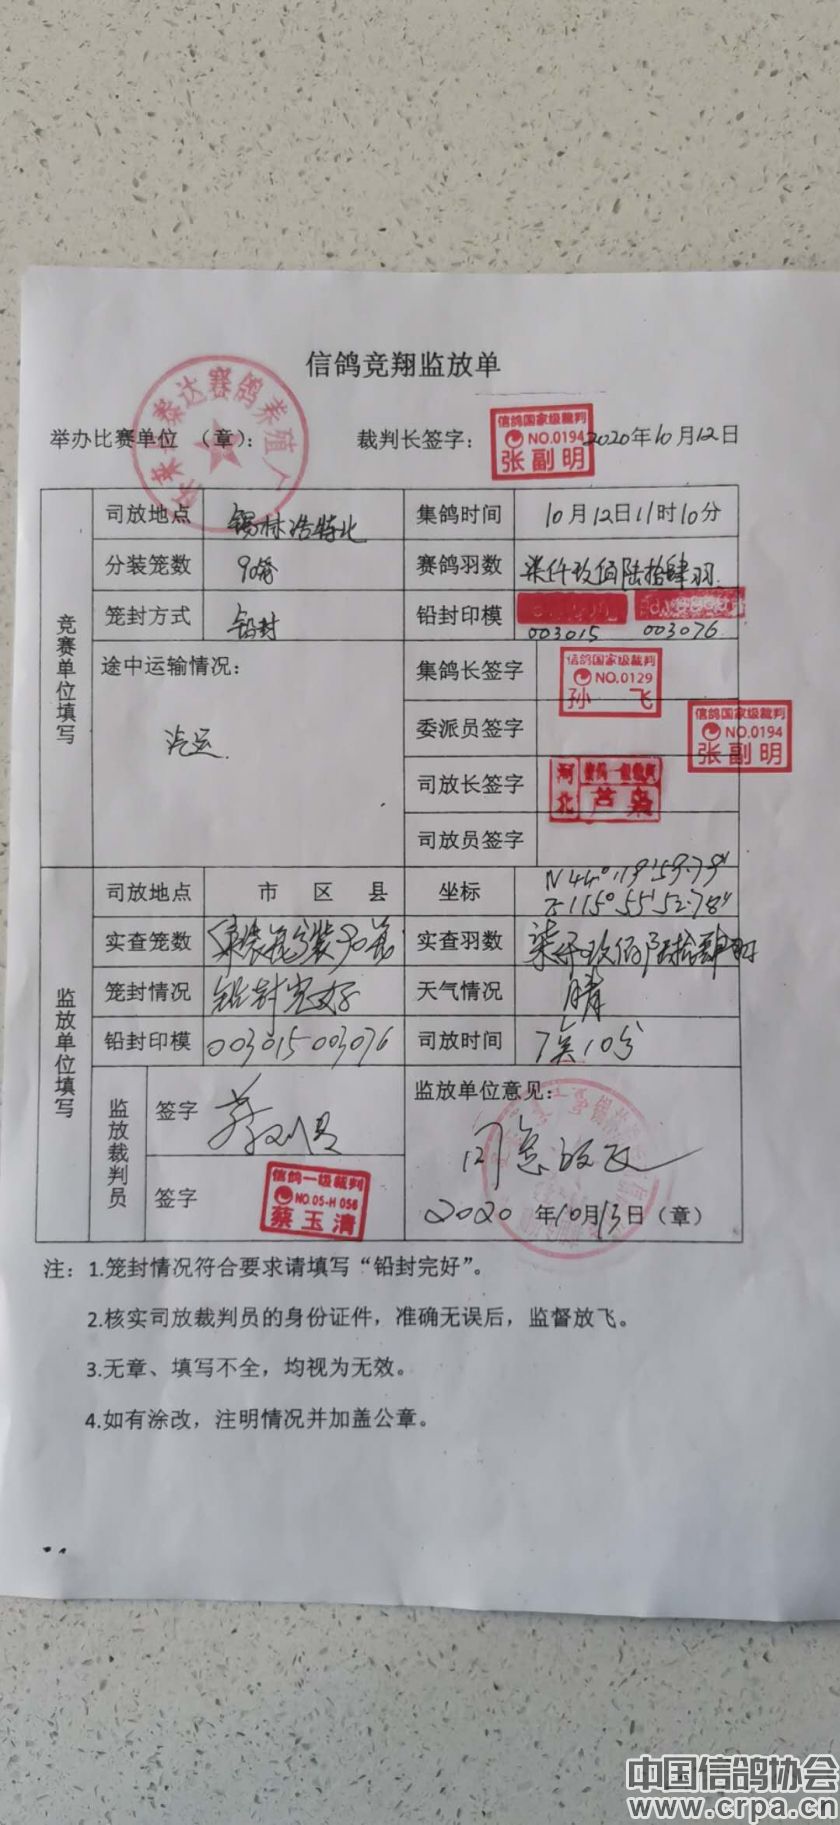 信鸽竞翔监放单
泰达赛鸽养殖
举办比赛单位 （章）： 裁判长签字： 2020年10月12日
信鸽国家级裁判
NO.0194
张副明
竞赛单位填写
司放地点 锡林浩特北 集鸽时间 10月12日11时10分
分装笼数 90 赛鸽羽数 柒仟玖佰陆拾肆羽
笼封方式 铅封 铅封印模 003015 003076
途中运输情况： 汽运 集鸽长签字
信鸽国家级裁判
NO.0129
孙 飞
委派员签字
信鸽国家级裁判
NO.0194
张副明
司放长签字
河北
信鸽一级裁判
芦
司放员签字
监放单位填写
司放地点 市 区 县 坐标 N44°19′59.79″
E115°55′52.78″
实查笼数 装90 实查羽数 柒仟玖佰陆拾肆羽
笼封情况 铅封完好 天气情况 晴
铅封印模 003015-003076 司放时间 7点10分
监放裁判员 签字 监放单位意见：
同意放飞
签字 2020年10月13日（章）
信鸽一级裁判
NO.05-H 056
蔡玉清
注： 1.笼封情况符合要求请填写“铅封完好”。
2.核实司放裁判员的身份证件，准确无误后，监督放飞。
3.无章、填写不全，均视为无效。
4.如有涂改，注明情况并加盖公章。
中国信鸽协会
www.crpa.cn